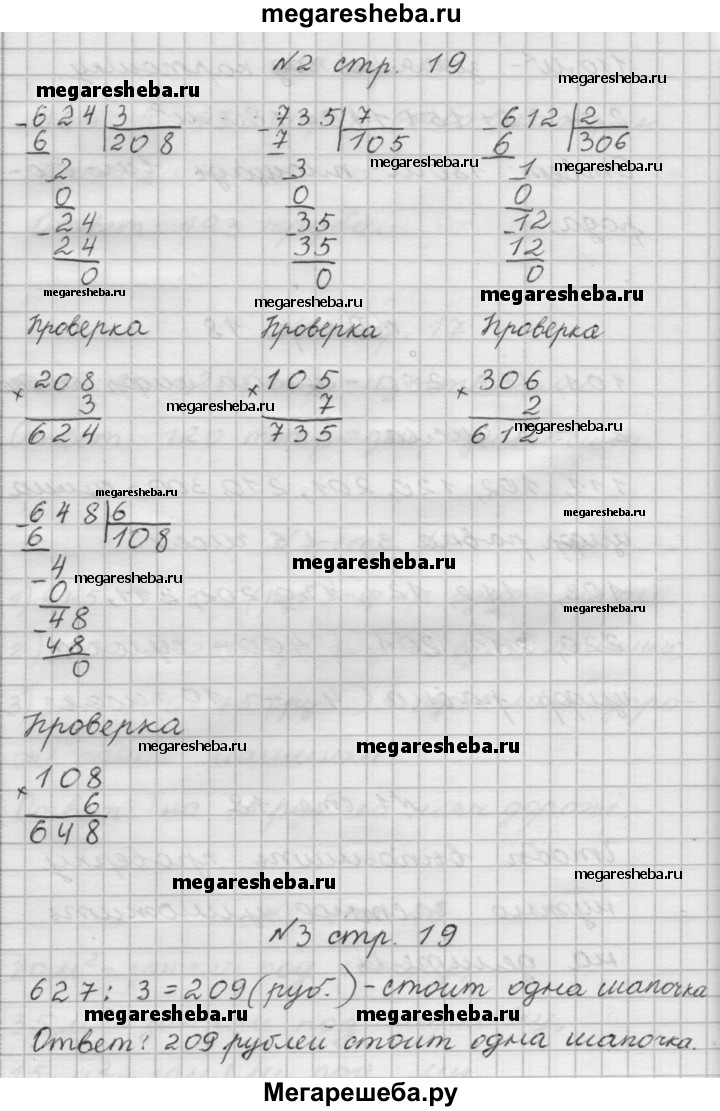 megaresheba.ru
№2 стр. 19
megaresheba.ru
megaresheba.ru
-624 | 3
6 208
-735 | 7
7 105
-612 | 2
6 306
megaresheba.ru
megaresheba.ru
2
0
-24
24
0
-3
0
-35
35
0
-1
0
-12
12
0
megaresheba.ru
megaresheba.ru
megaresheba.ru
Проверка Проверка Проверка
×208
3
624
×105
7
735
×306
2
612
megaresheba.ru
megaresheba.ru
megaresheba.ru
-648 | 6
6 108
megaresheba.ru
megaresheba.ru
-4
0
-48
48
0
megaresheba.ru
megaresheba.ru
Проверка
megaresheba.ru
megaresheba.ru
×108
6
648
megaresheba.ru
megaresheba.ru
№3 стр. 19
627: 3=209(руб.)-стоит одна шапочка
megaresheba.ru
megaresheba.ru
Ответ: 209 рублей стоит одна шапочка.
Мегарешеба.ру